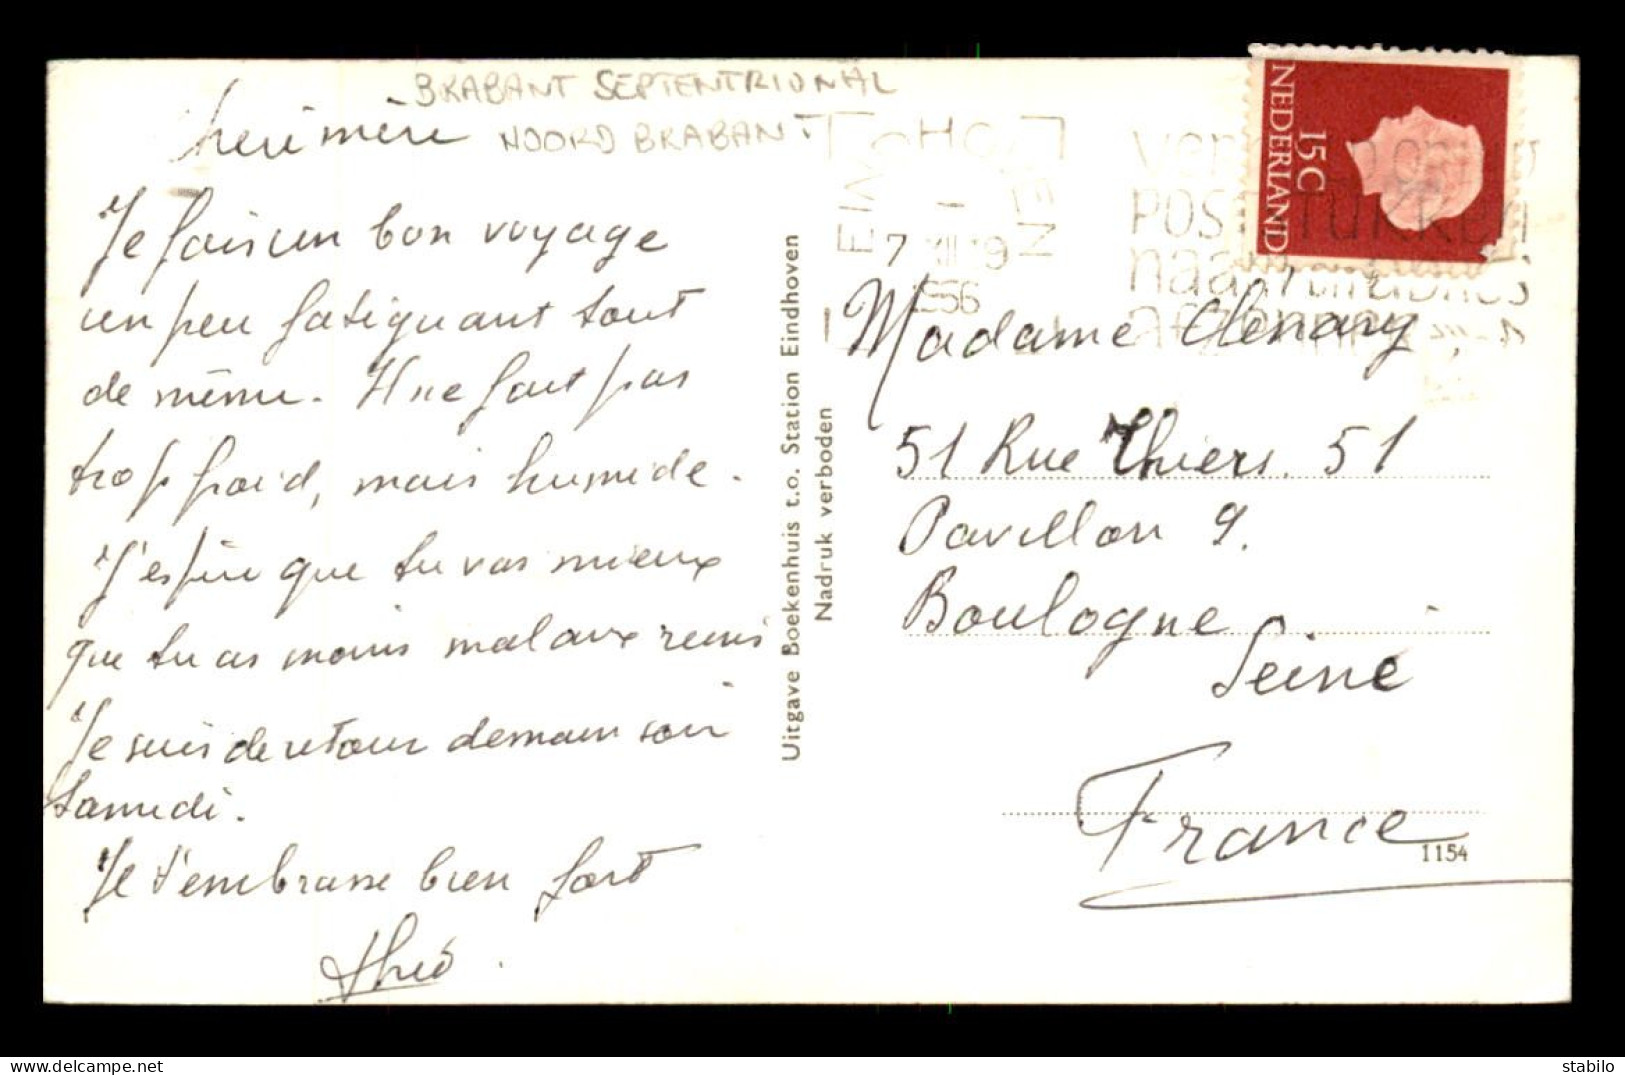 BRABANT SEPTENTRIONAL
NOORD BRABANT
Chère mère
Je fais un bon voyage
un peu fatiguant tout
de même. Il ne fait pas
trop froid, mais humide.
J'espère que tu vas mieux
que tu as moins mal aux reins
Je suis de retour demain soir
Samedi.
Je t'embrasse bien fort
Théo
Uitgave Boekenhuis t.o. Station Eindhoven
Nadruk verboden
EINDHOVEN
7 XII 19
1956
POSTSTUKKEN
NEDERLAND
15 C
Madame
51 Rue Thiers. 51
Pavillon 9.
Boulogne
Seine
France
1154
stabilo60